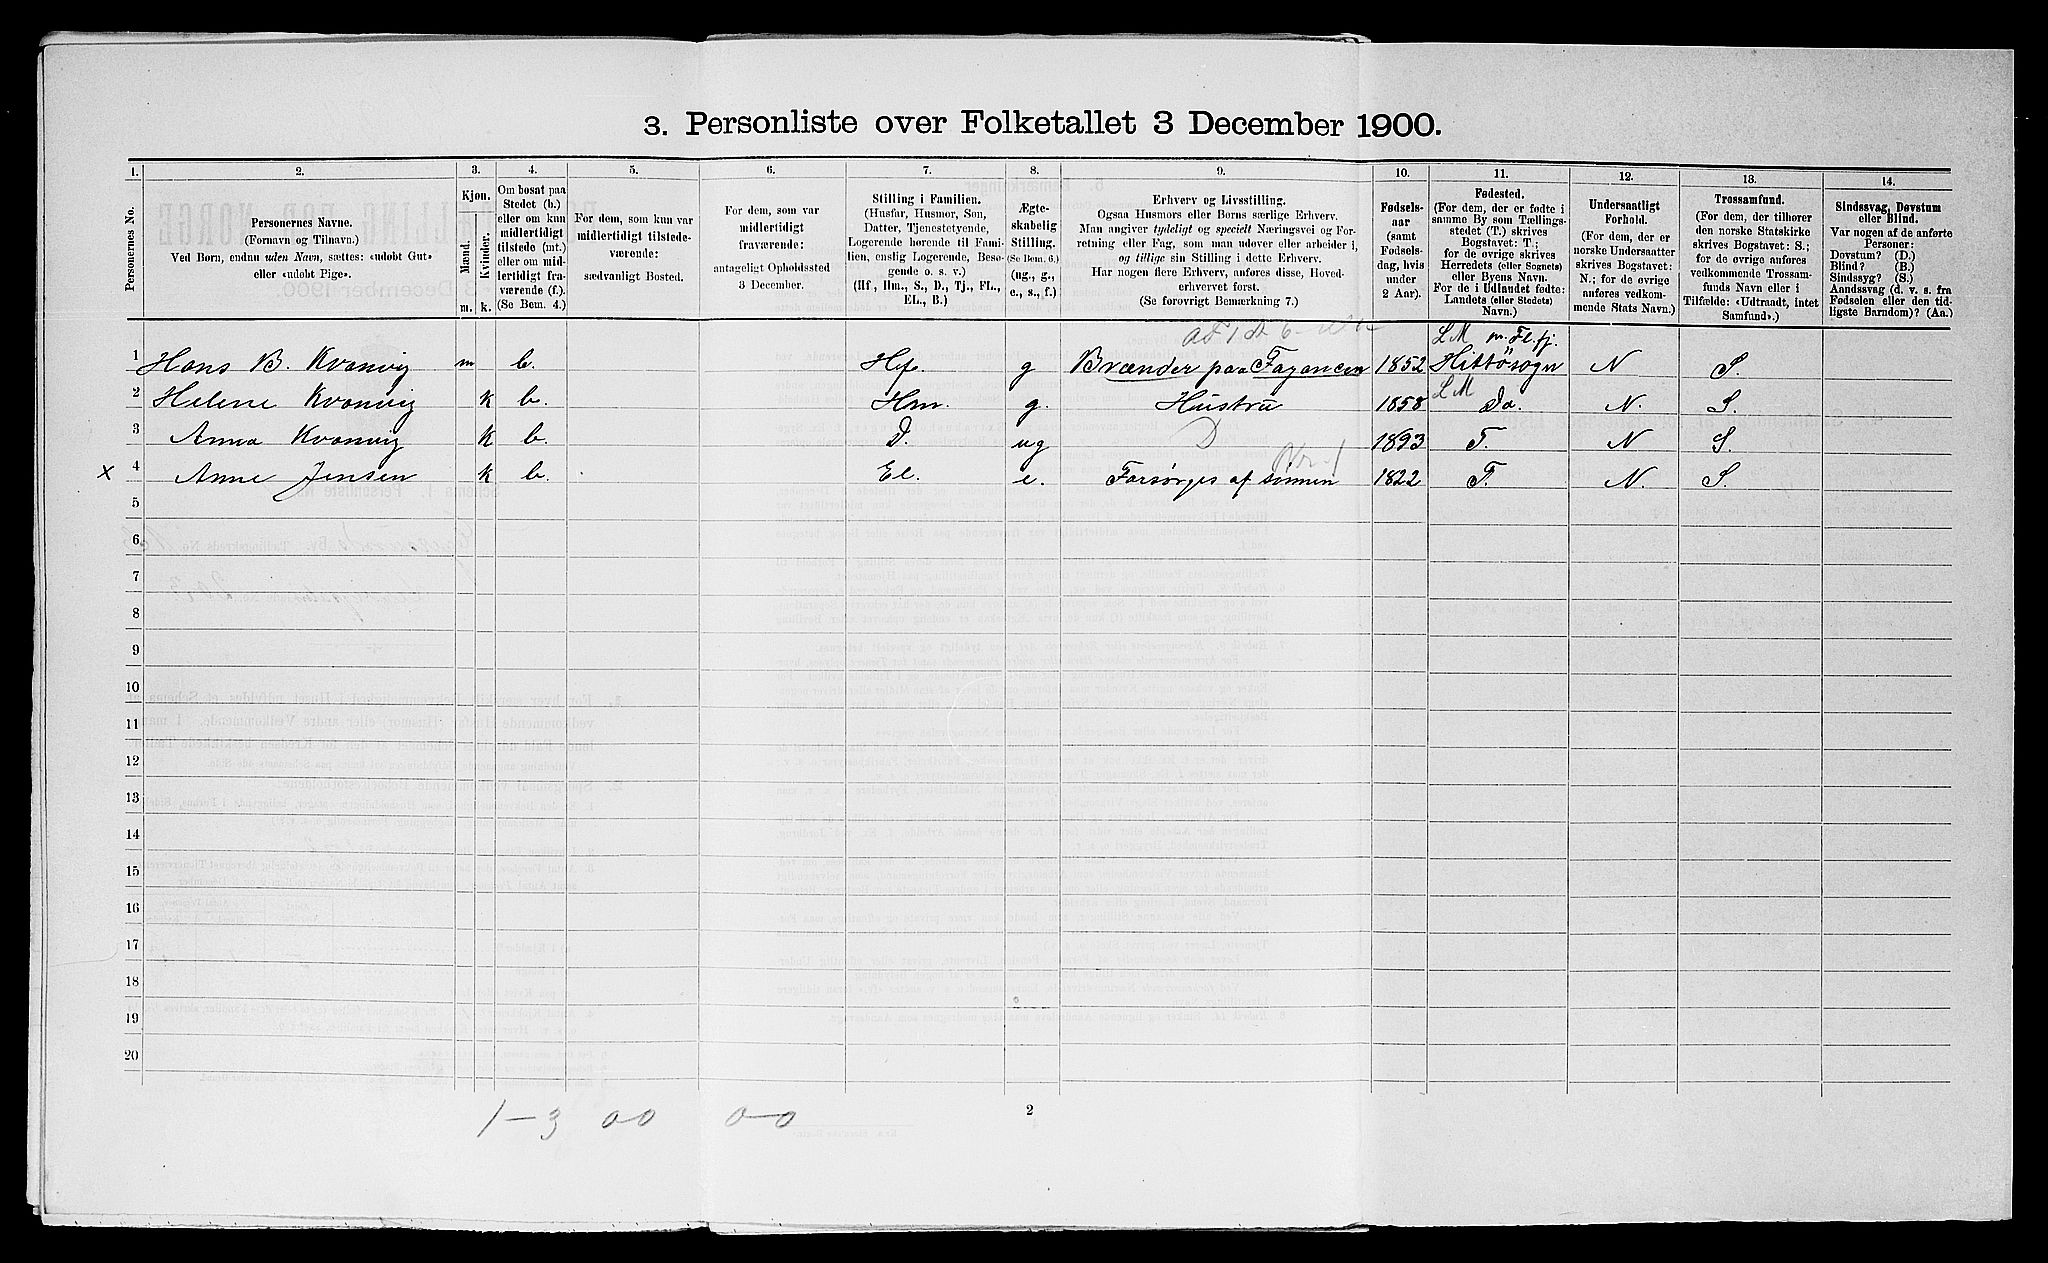 3. Personliste over Folketallet 3 December 1900.
1. 2. 3. 4. 5. 6. 7. 8. 9. 10. 11. 12. 13. 14.
Personernes No.
Personernes Navne.
(Fornavn og Tilnavn.)
Ved Børn, endnu uden Navn, sættes: «udøbt Gut»
eller «udøbt Pige».
Kjøn.
Mænd.
Kvinder.
m. k.
Om bosat paa
Stedet (b.)
eller om kun
midlertidigt
tilstede (mt.)
eller om mid-
lertidigt fra-
værende (f.).
(Se Bem. 4.)
For dem, som kun var
midlertidigt tilstede-
værende:
sædvanligt Bosted.
For dem, som var
midlertidigt
fraværende:
antageligt Opholdssted
3 December.
Stilling i Familien.
(Husfar, Husmor, Søn,
Datter, Tjenestetyende,
Logerende hørende til Fami-
lien, enslig Logerende, Besø-
gende o. s. v.)
(Hf., Hm., S., D., Tj., FL.,
EL., B.)
Ægte-
skabelig
Stilling.
(Se Bem. 6.)
(ug., g.,
e., s., f.)
Erhverv og Livsstilling.
Ogsaa Husmors eller Børns særlige Erhverv.
Man angiver tydeligt og specielt Næringsvei og For-
retning eller Fag, som man udøver eller arbeider i,
og tillige sin Stilling i dette Erhverv.
Har nogen flere Erhverv, anføres disse, Hoved-
erhvervet først.
(Se forøvrigt Bemærkning 7.)
Fødsels-
aar
(samt
Fødsels-
dag, hvis
under
2 Aar).
Fødested.
(For dem, der er fødte i
samme By som Tællings-
stedet (T.) skrives
Bogstavet: T.;
for de øvrige skrives
Herredets (eller Sognets)
eller Byens Navn.
For de i Udlandet fødte:
Landets (eller Stedets)
Navn.)
Undersaatligt
Forhold.
(For dem, der er
norske Undersaatter
skrives Bogstavet:
N.; for de øvrige
anføres vedkom-
mende Stats Navn.)
Trossamfund.
(For dem, der tilhører
den norske Statskirke
skrives Bogstavet: S.;
for de øvrige anføres
vedkommende Trossam-
funds Navn eller i
Tilfælde: «Udtraadt, intet
Samfund».)
Sindssvag, Døvstum
eller Blind.
Var nogen af de anførte
Personer:
Døvstum? (D.)
Blind? (B.)
Sindssyg? (S.)
Aandssvag (d. v. s. fra
Fødselen eller den tid-
ligste Barndom)? (Aa.)
L M
1 Hans B. Kvanvig m b. Hf. g Brænder paa Fayancen 1852 Hittösogn N S.
L M
2 Helene Kvanvig k b. Hm. g. Hustru 1858 Do. N. S.
3 Anna Kvanvig k b. D. ug D 1893 T. N S.
No. 1
x 4 Anne Jensen k b. El. e. Forsørges af sønnen 1822 T. N. S.
5
6
7
8
9
10
11
12
13
14
15
16
17
18
19
20
1-3 00 0-0
2